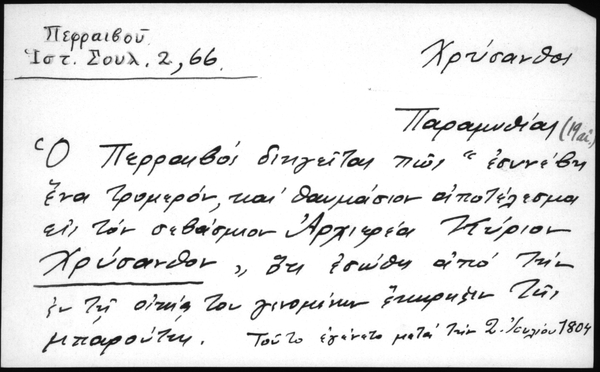 Περραιβοῦ
Ἱστ. Σουλ. 2, 66.
Χρύσανθος
Παραμυθίας (19 αἰ.)
Ὁ Περραιβός διηγεῖται πῶς "ἐσυνέβη
ἕνα τρομερόν, καί θαυμάσιον ἀποτέλεσμα
εἰς τόν σεβάσμιον Ἀρχιερέα Κύριον
Χρύσανθον „ ὅτι ἐσώθη ἀπό τήν
ἐν τῇ οἰκίᾳ του γενομένην ἔκρηξιν τῆς
μπαρούτης. Τοῦτο ἐγένετο μετά τήν 2 Ἰουλίου 1804